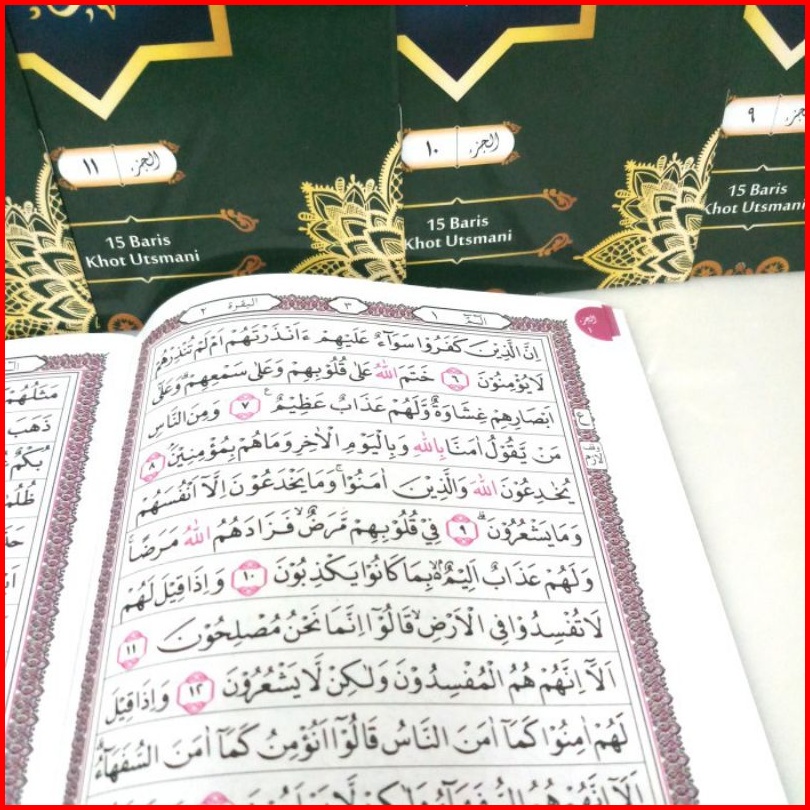 الجزء
١١
15 Baris
Khot Utsmani
الجزء
١٠
15 Baris
Khot Utsmani
٩
15 Baris
Khot Utsmani
الٓمّٓ ١
٣
البقرة ٢
الجزء
١
اِنَّ الَّذِيْنَ كَفَرُوْا سَوَآءٌ عَلَيْهِمْ ءَاَنْذَرْتَهُمْ اَمْ لَمْ تُنْذِرْهُمْ
لَا يُؤْمِنُوْنَ ٦ خَتَمَ اللّٰهُ عَلٰى قُلُوْبِهِمْ وَعَلٰى سَمْعِهِمْ ۗ وَعَلٰٓى
اَبْصَارِهِمْ غِشَاوَةٌ وَّلَهُمْ عَذَابٌ عَظِيْمٌ ٧ وَمِنَ النَّاسِ
مَنْ يَّقُوْلُ اٰمَنَّا بِاللّٰهِ وَبِالْيَوْمِ الْاٰخِرِ وَمَا هُمْ بِمُؤْمِنِيْنَ ۘ ٨
يُخٰدِعُوْنَ اللّٰهَ وَالَّذِيْنَ اٰمَنُوْا ۚ وَمَا يَخْدَعُوْنَ اِلَّآ اَنْفُسَهُمْ
وَمَا يَشْعُرُوْنَ ۗ ٩ فِيْ قُلُوْبِهِمْ مَّرَضٌۙ فَزَادَهُمُ اللّٰهُ مَرَضًاۚ
وَلَهُمْ عَذَابٌ اَلِيْمٌ ۢ ەۙ بِمَا كَانُوْا يَكْذِبُوْنَ ١٠ وَاِذَا قِيْلَ لَهُمْ
لَا تُفْسِدُوْا فِى الْاَرْضِۙ قَالُوْٓا اِنَّمَا نَحْنُ مُصْلِحُوْنَ ١١
اَلَآ اِنَّهُمْ هُمُ الْمُفْسِدُوْنَ وَلٰكِنْ لَّا يَشْعُرُوْنَ ١٢ وَاِذَا قِيْلَ
لَهُمْ اٰمِنُوْا كَمَآ اٰمَنَ النَّاسُ قَالُوْٓا اَنُؤْمِنُ كَمَآ اٰمَنَ السُّفَهَاۤءُ
مَثَلُهُمْ
ذَهَبَ